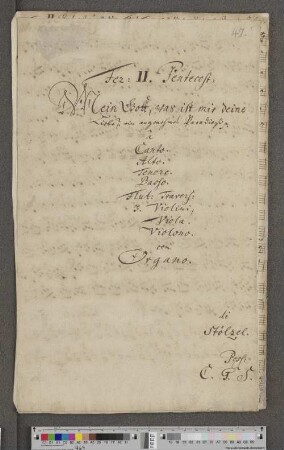 42.
Fer: II. Pentecost.
Mein Gott, was ist mir deine
Liebe, ein angenehmes Paradies,
à
Canto.
Alto.
Tenore.
Basso.
Flut: Travers:
3. Violini,
Viola.
Violono.
con
Organo.
di
Stölzel.
Poss: